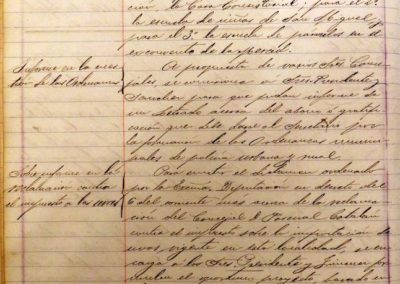 ción, la Casa Consistorial; para el 2º
la escuela de niñas de San Miguel, y
para el 3º la escuela de parvulos en el
ex convento de la
Informe en la
de las Ordenanzas
A propuesta de varios Sres. Conce-
jales se a los Sres. Presidente y
Sanchez para que pudan informe de
un letrado acerca del abono ó gratifi-
cación que debe darse al Instituto por
la de las Ordenanzas munici-
pales de policia urbana y rural.
Sobre informe en la
reclamación contra
el impuesto a las uvas
Para emitir el dictamen ordenado
por la Excma. Diputación en decreto del
6 del corriente mes acerca de la reclama-
ción del Concejal D. Pascual Catalan
contra el impuesto sobre la importación de
uvas vigente en esta localidad, se en-
carga a los Sres. Presidente y Jimenez for-
mulen el oportuno proyecto, basado en